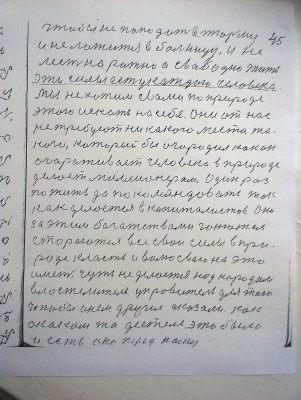 чтобы не попадат в тюрму 45
и не ложится в болницу, и не
лест на рожно а свабодно жить
Эти силы есть у каждого человека.
Мы не хотим с вами по природе
этого искать на себе. Они от нас
не требуют никакого места та-
кого, который бы огородил как он
огораживает человека в природе
делает миллионером. Один раз
пожить да покомандовать так
как делается в капиталистов. Они
за этим богатством гонются
стораются все свои силы в при-
роде класть и волосьми на это
иметь чуть не делается над народом
властелителем управителем для того
чтобы о нем другия сказали. как
о каком та деятеле это было
и есть оно перед нами